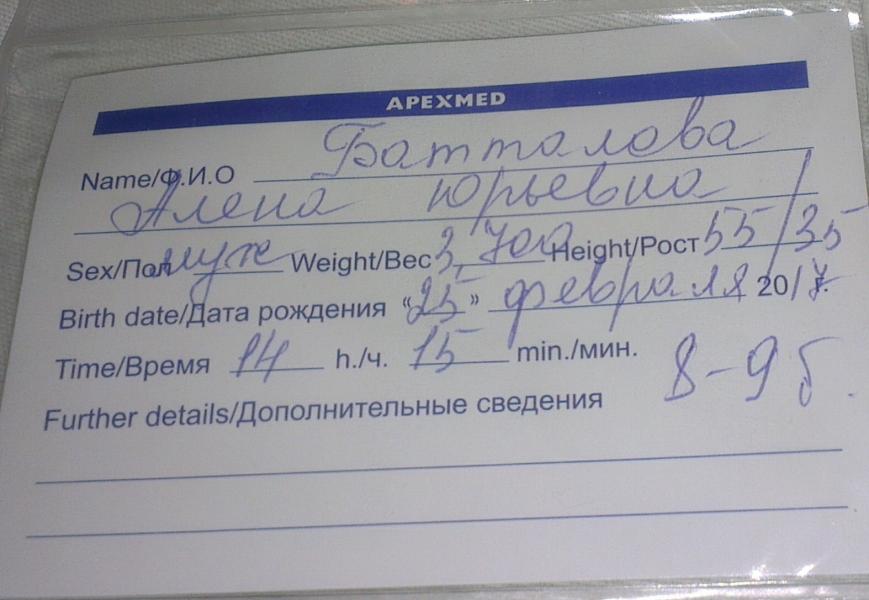 APEXMED
Name/Ф.И.О Батталова
Алена Юрьевна
Sex/Пол муж Weight/Вес 3,700 Height/Рост 55/35
Birth date/Дата рождения «25» февраля 2017г.
Time/Время 14 h./ч. 15 min./мин.
Further details/Дополнительные сведения 8-9 б.